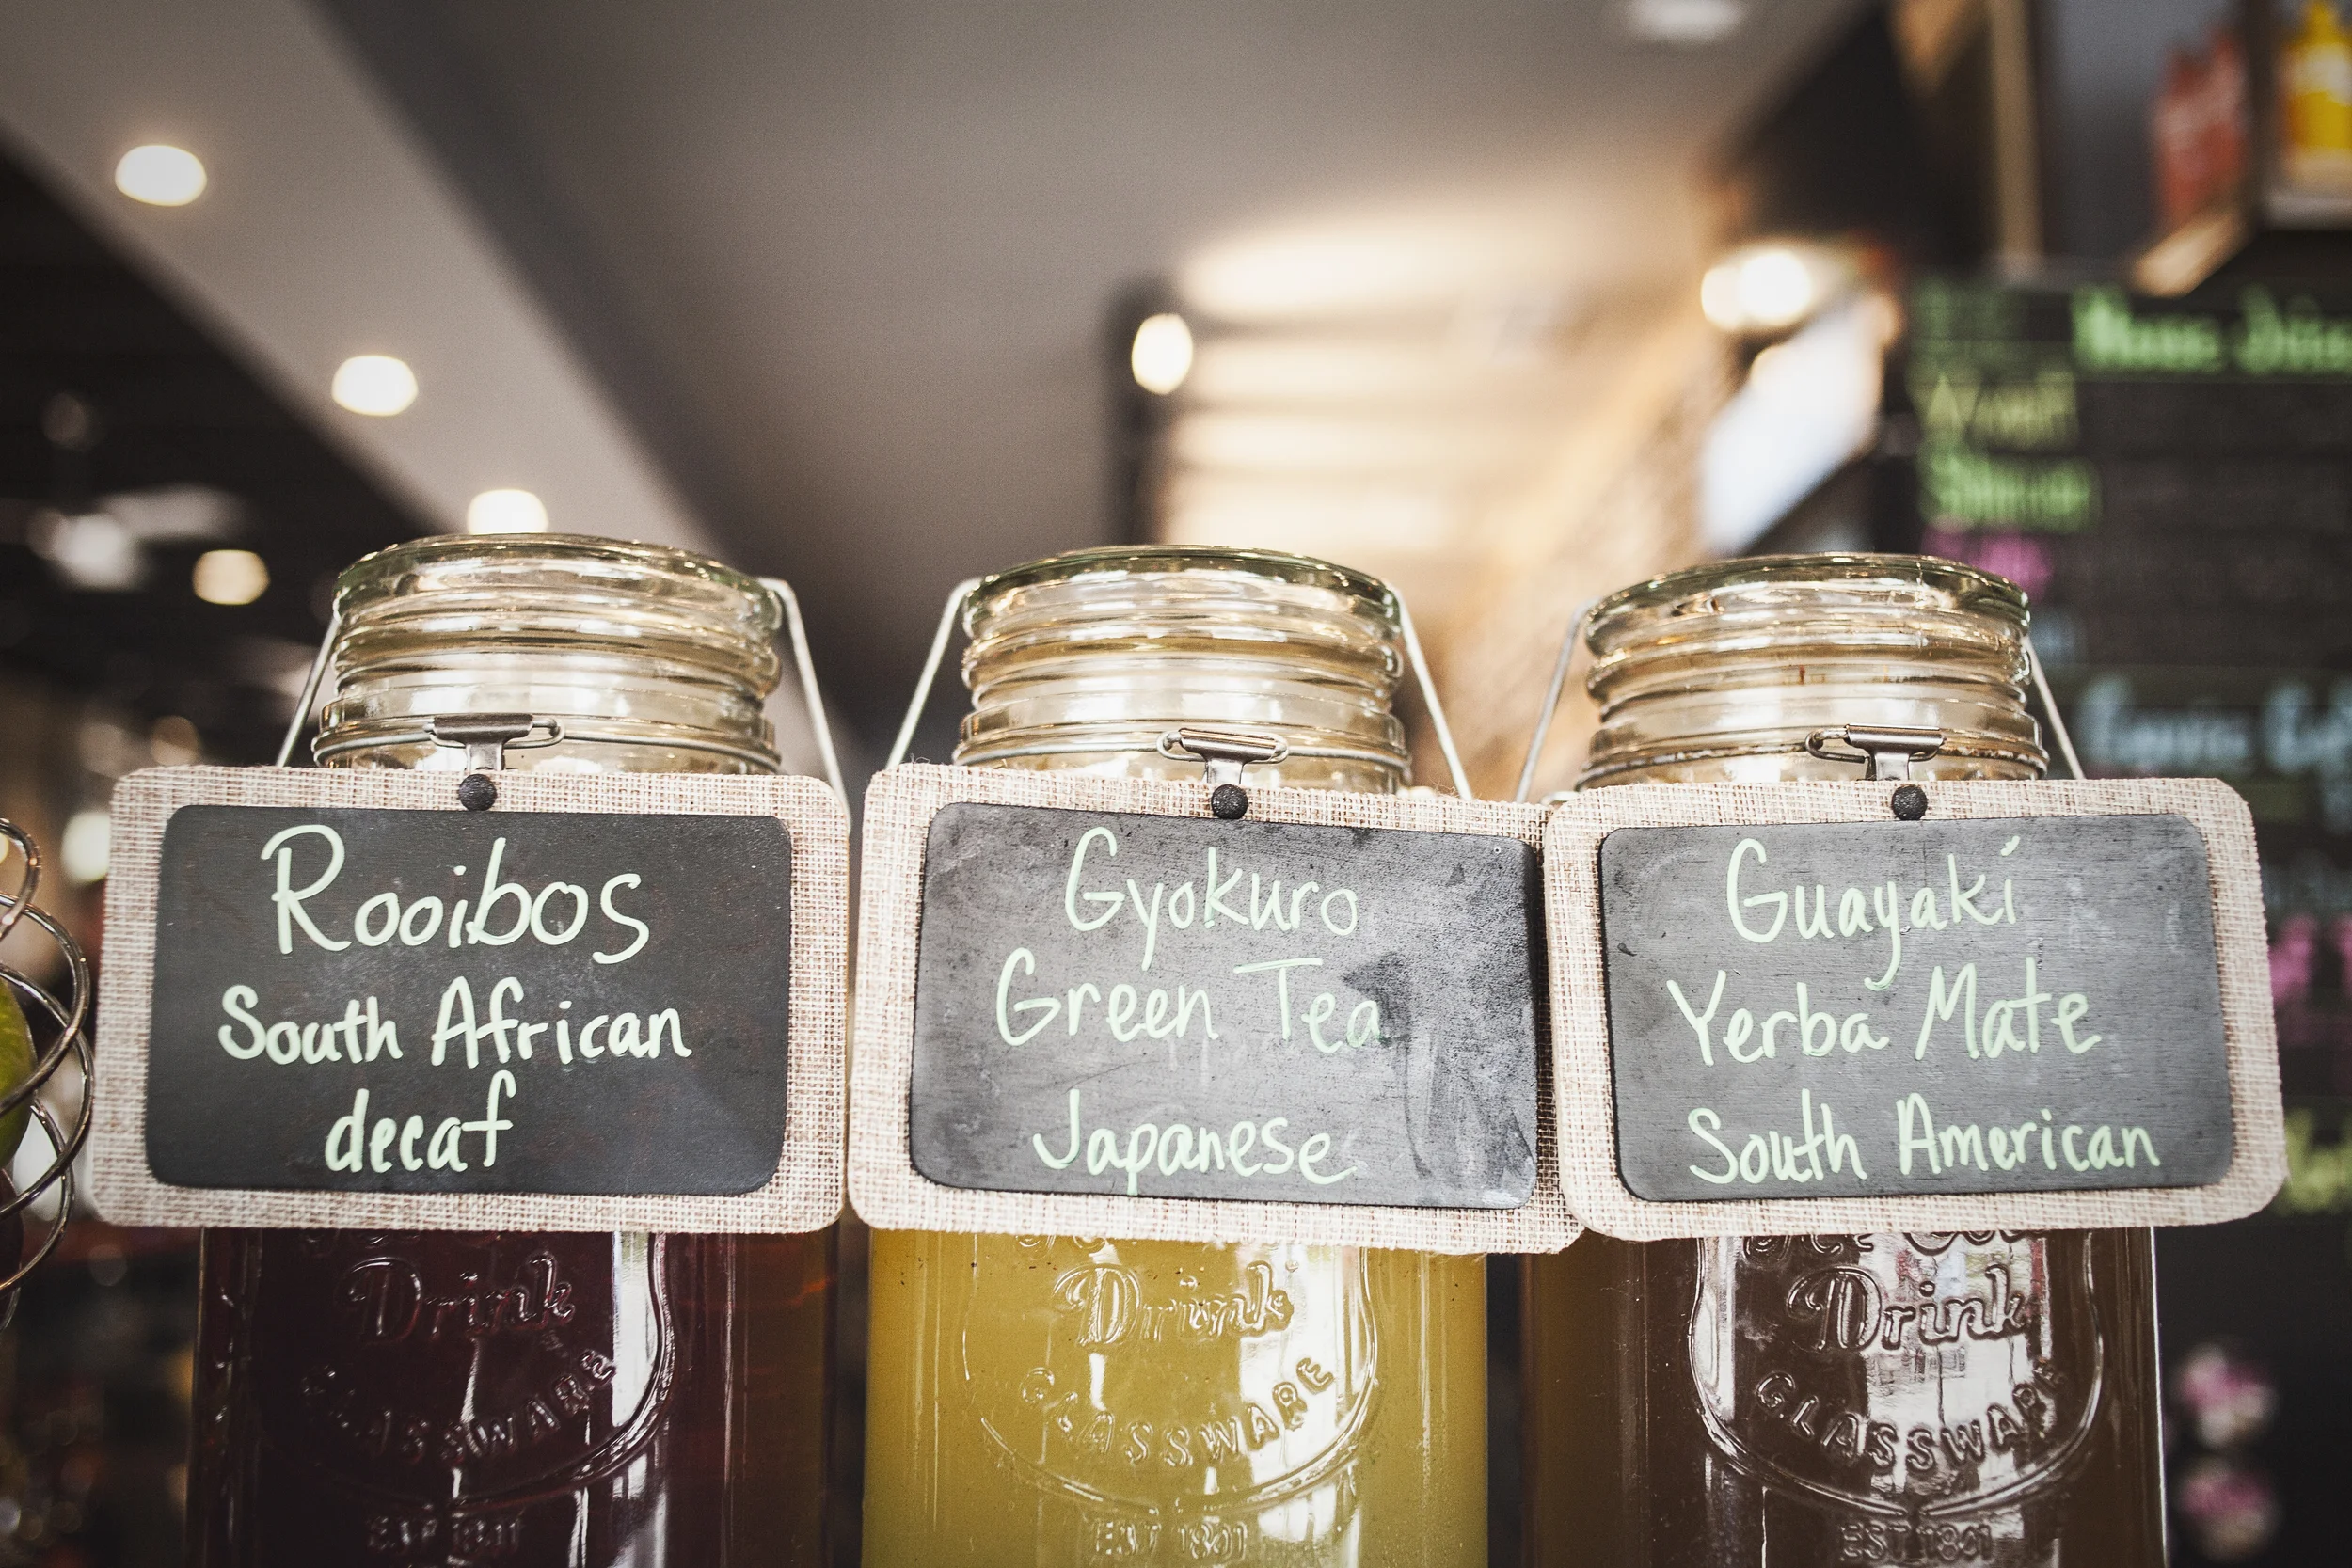 Rooibos
South African
decaf
Gyokuro
Green Tea
Japanese
Guayakí
Yerba Mate
South American
Drink
GLASSWARE
EST 1801
Drink
GLASSWARE
EST 1801
Drink
GLASSWARE
EST 1801